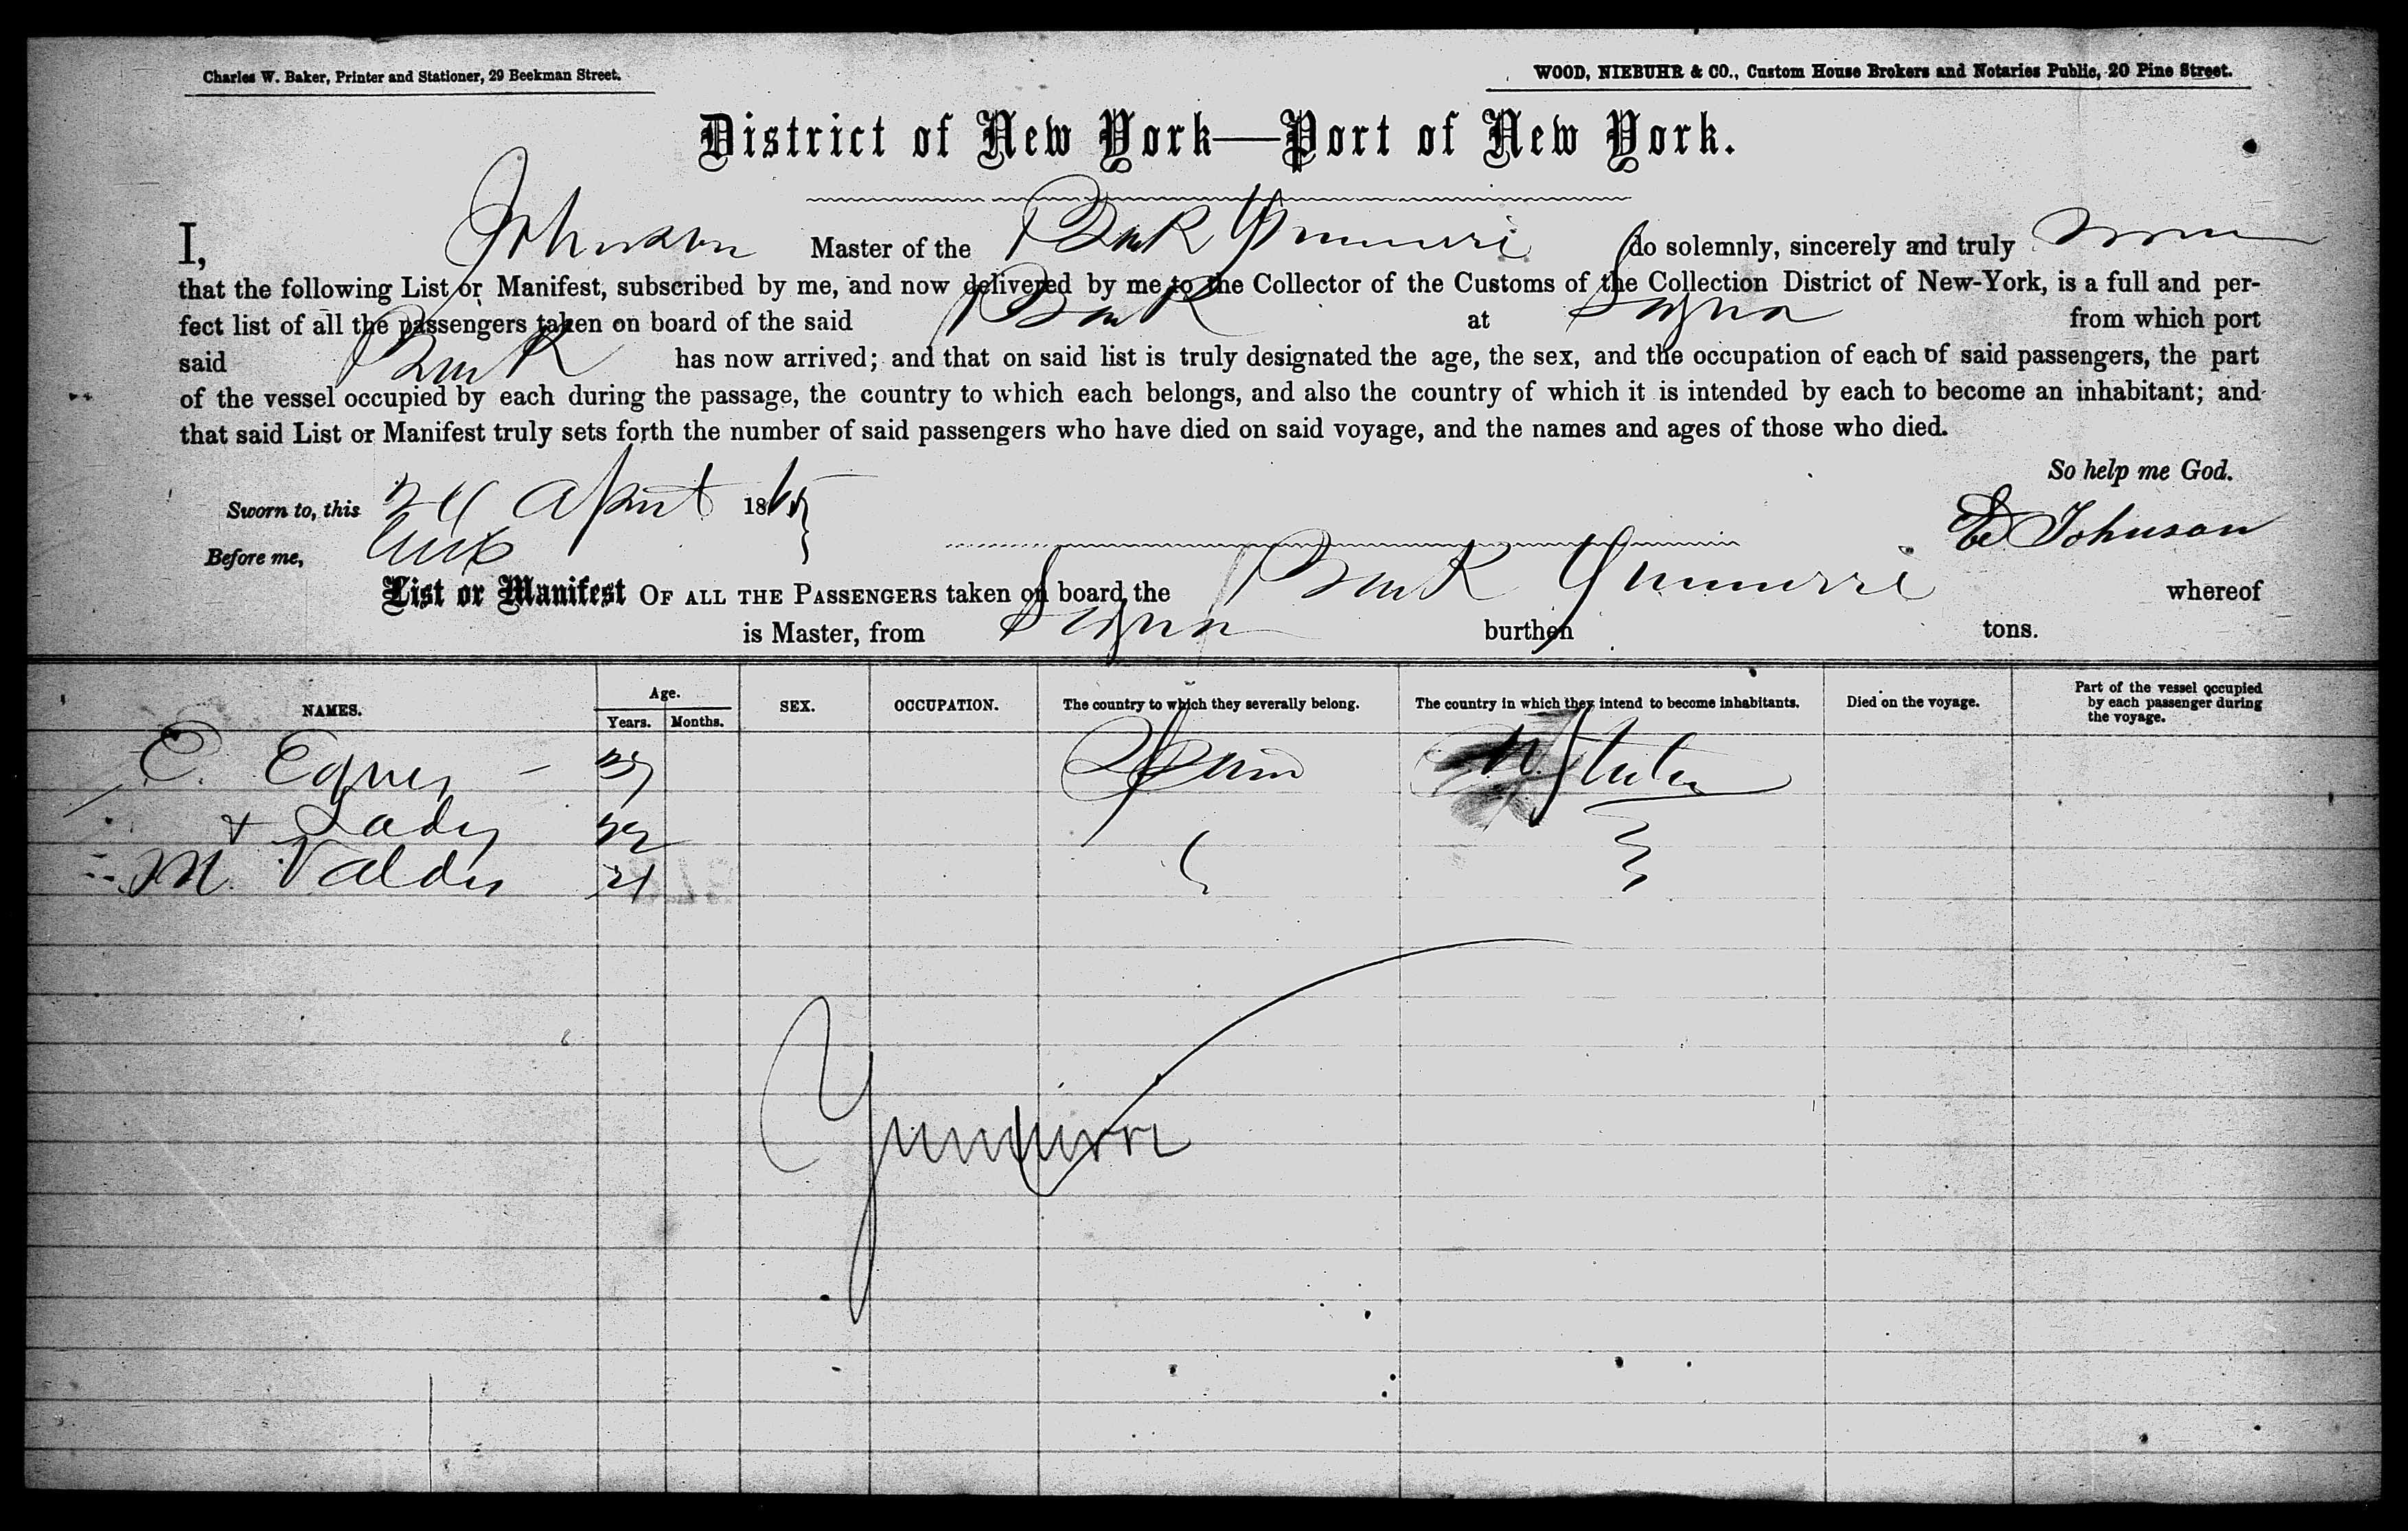 Charles W. Baker, Printer and Stationer, 29 Beekman Street.
WOOD, NIEBUHR & CO., Custom House Brokers and Notaries Public, 20 Pine Street.
District of New York—Port of New York.
I, Johnson Master of the Bark Yumurri do solemnly, sincerely and truly swear
that the following List or Manifest, subscribed by me, and now delivered by me to the Collector of the Customs of the Collection District of New-York, is a full and per-
fect list of all the passengers taken on board of the said Bark at Sagua from which port
said Bark has now arrived; and that on said list is truly designated the age, the sex, and the occupation of each of said passengers, the part
of the vessel occupied by each during the passage, the country to which each belongs, and also the country of which it is intended by each to become an inhabitant; and
that said List or Manifest truly sets forth the number of said passengers who have died on said voyage, and the names and ages of those who died.
So help me God.
Sworn to, this 24 April 1865
E Johnson
Before me,
List or Manifest OF ALL THE PASSENGERS taken on board the Bark Yumurri whereof
is Master, from Sagua burthen tons.
NAMES. Age. Years. Months. SEX. OCCUPATION. The country to which they severally belong. The country in which they intend to become inhabitants. Died on the voyage. Part of the vessel occupied by each passenger during the voyage.
E. Egues Spain States
+ Lady 22
M. Valdes 21
Yumurri